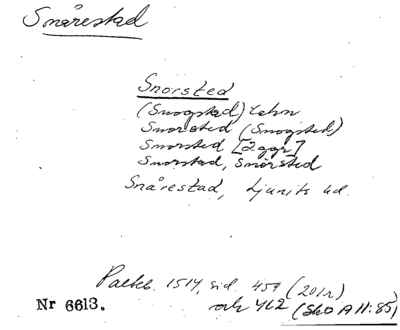 Snårestad
Snorsted
(Snogstad) Lehn
Snorsted (Snogsted)
Snorsted [2 ggr]
Snorstad, Snörsted
Snårestad, Ljunits hd.
Palteb. 1514, sid. 457 (201r)
Nr 6613. och 462 (Sko A II:85)